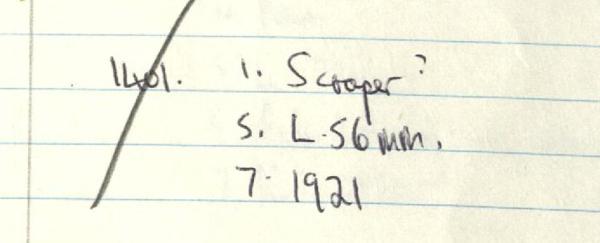 1401. 1. Scraper?
5. L.56mm.
7. 1921